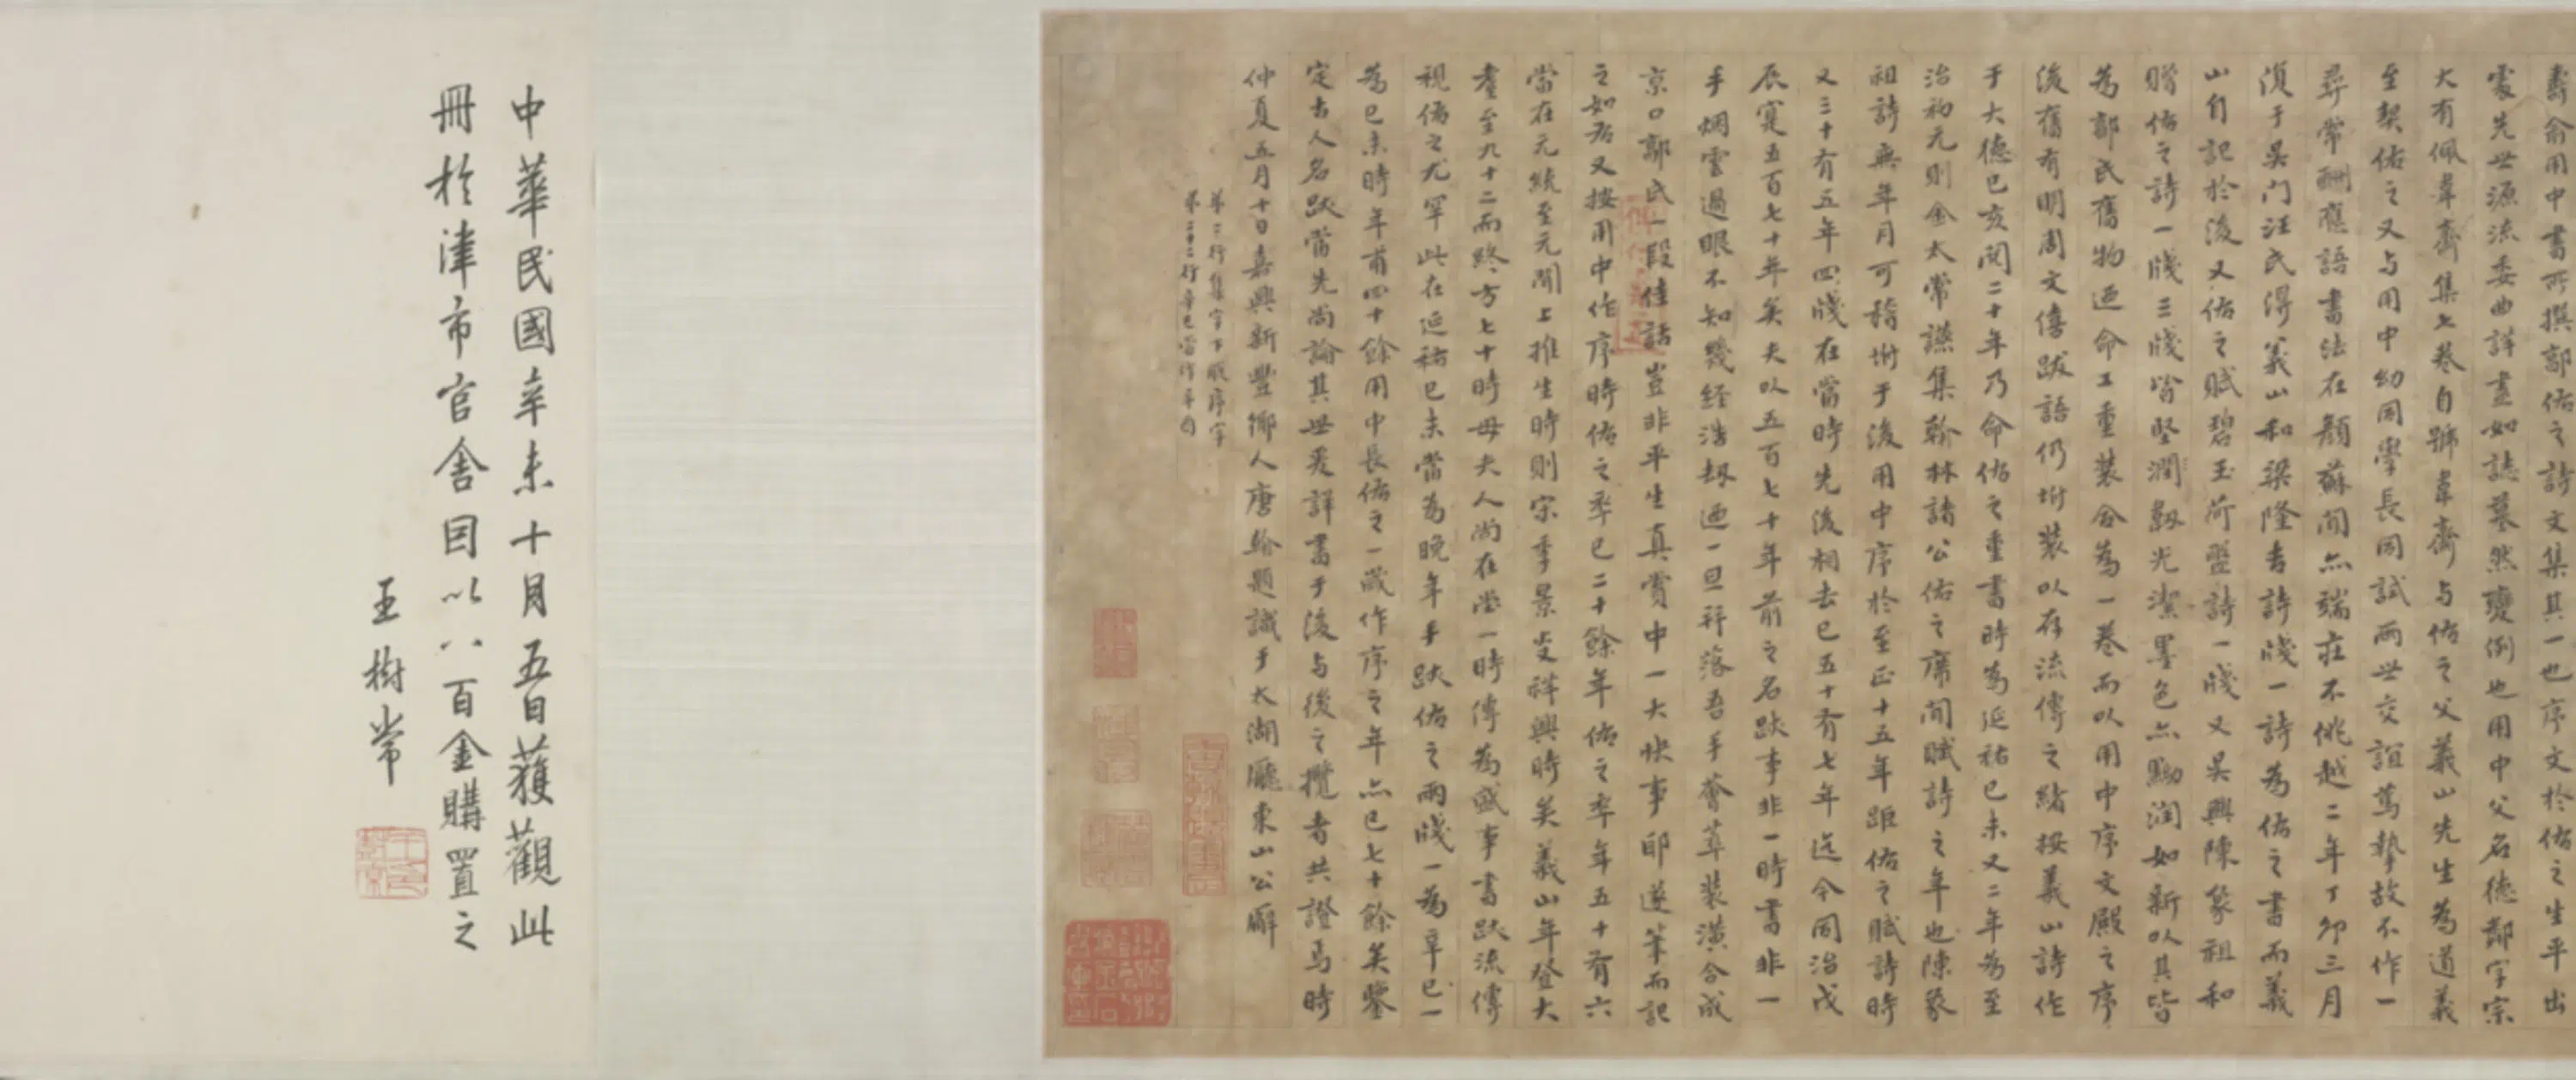 壽俞用中書所撰郭佑之詩文集其一也序文於佑之生平出
處先世源流委曲詳盡如誌墓然變例也用中父名德鄰字宗
大有佩韋齋集七卷自號韋齋与佑之父義山先生為道義
至契佑之又与用中幼同學長同試兩世交誼篤摯故不作一
尋常酬應語書法在顏蘇間亦端莊不佻越二年丁卯三月
復于吴门汪氏得義山和梁隆吉詩牋一詩為佑之書而義
山自記於後又佑之賦碧玉荷盤詩一牋又吴興陳篆祖和
贈佑之詩一牋三牋皆堅潤紉光潔墨色亦黝润如新以其皆
為郭氏舊物迺命工重裝合為一卷而以用中序文殿之序
後舊有明周文僖跋語仍坿裝以存流傳之緒按義山詩作
于大德己亥閱二十年乃命佑之重書時為延祐己未又二年為至
治初元則金太常讌集翰林諸公佑之席間賦詩之年也陳篆
祖詩無年月可稽坿于後用中序於至正十五年距佑之賦詩時
又三十有五年四牋在當時先後相去已五十有七年迄今同治戊
辰寔五百七十年矣夫以五百七十年前之名跡事非一時書非一
手烟雲過眼不知幾經浩劫迺一旦拜落吾手薈萃裝潢合成
京口郭氏一段佳話豈非平生真賞中一大快事耶遂筆而記
之如右又按用中作序時佑之卒已二十餘年佑之卒年五十有六
當在元統至元間上推生時則宋季景炎祥興時矣義山年登大
耋至九十二而終方七十時母夫人尚在堂一時傳為盛事書跡流傳
視佑之尤罕此在延祐己未當為晚年手跡佑之兩牋一為辛巳一
為己未時年甫四十餘用中長佑之一歲作序之年亦已七十餘矣鑒
定古人名跡當先尚論其世爰詳書于後与後之攬者共證焉時
仲夏五月十日嘉興新豐鄉人唐翰題識于太湖廳東山公廨
第二行集字下脫序字
第二十二行辛巳當作辛酉
中華民國辛未十月五日獲觀此
冊於津市官舍因以八百金購置之
王樹常